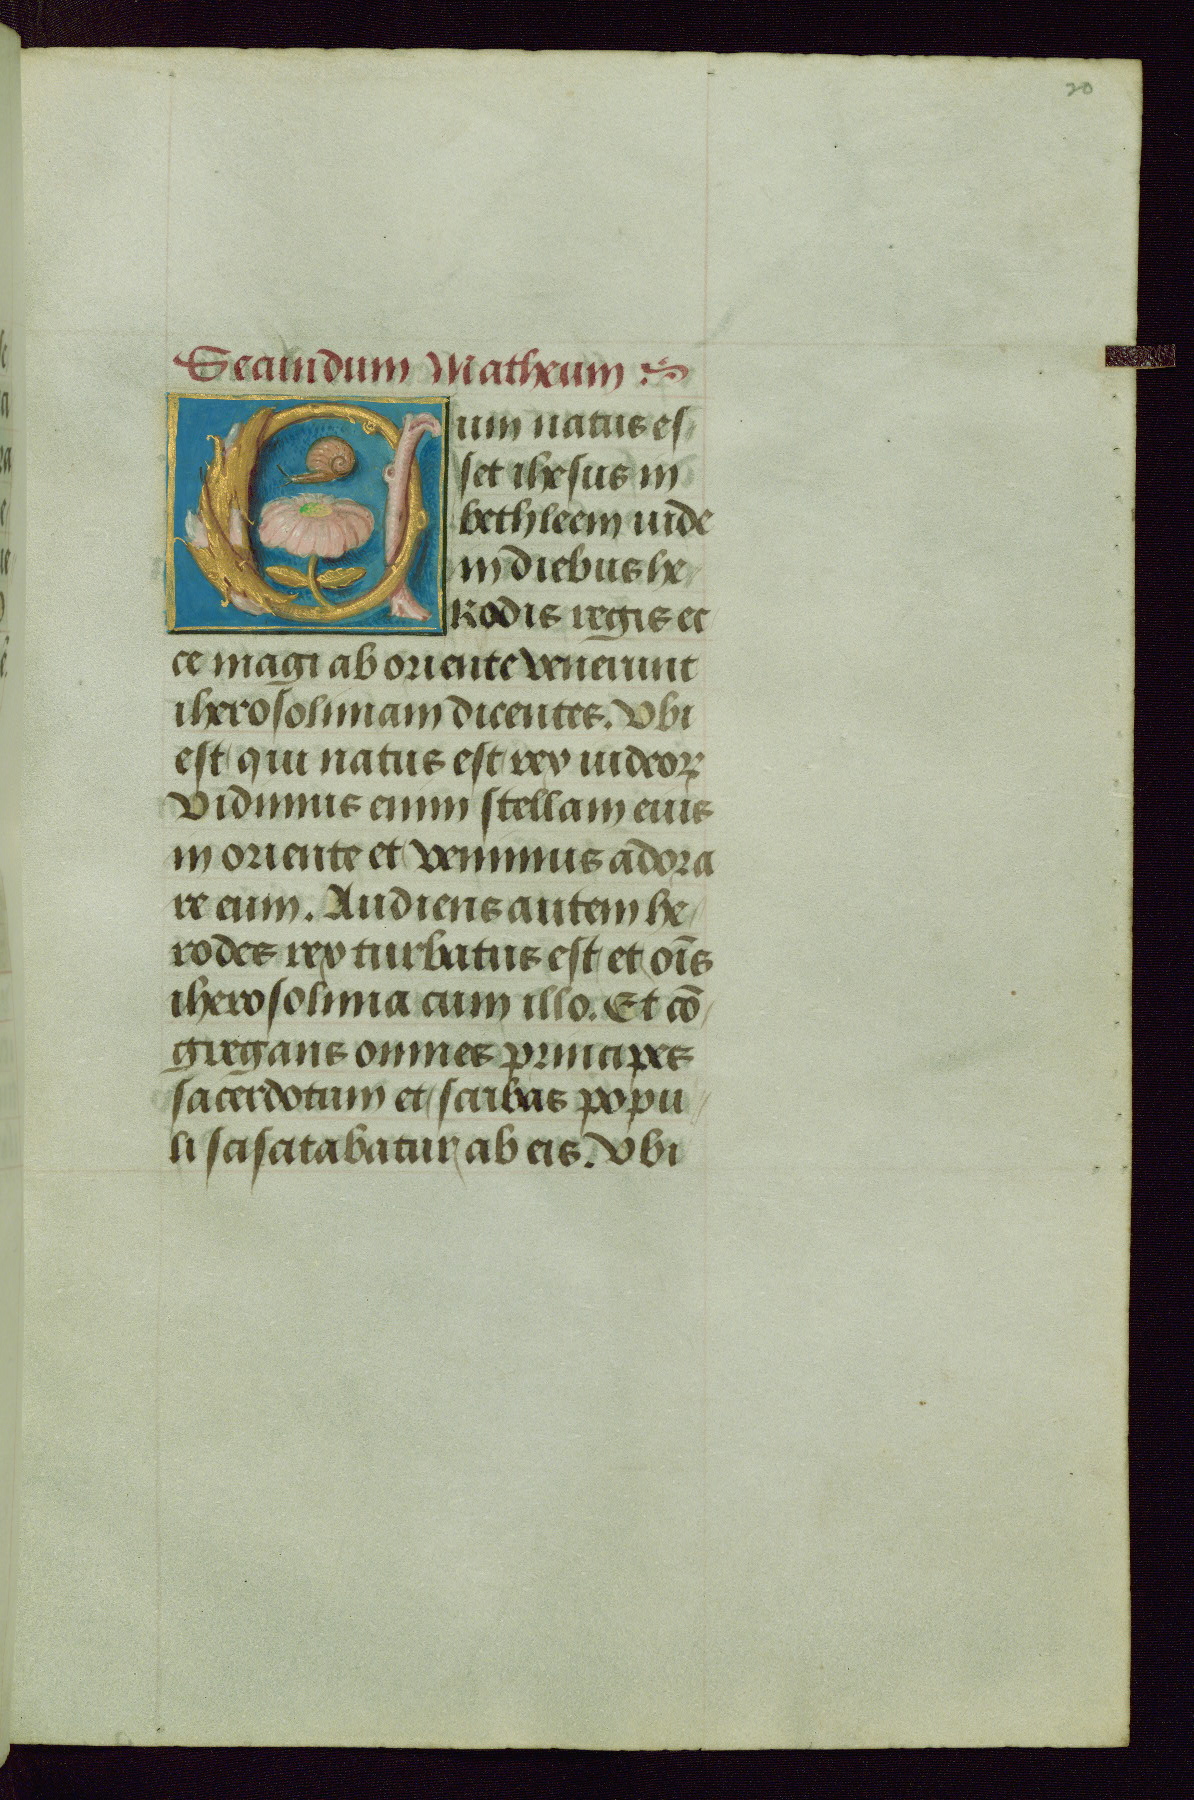 20
Secundum Matheum
Cum natus es
set ihesus in
bethleem iude
in diebus he
Rodis regis ec
ce magi ab oriente venerunt
iherosolimam dicentes. Vbi
est qui natus est rex iudeoꝝ
Vidimus enim stellam eius
in oriente et venimus adora
re eum. Audiens autem he
rodes rex turbatus est et oīs
iherosolima cum illo. Et cō
gregans omnes principes
sacerdotum et scribas popu
li sciscitabatur ab eis. Vbi